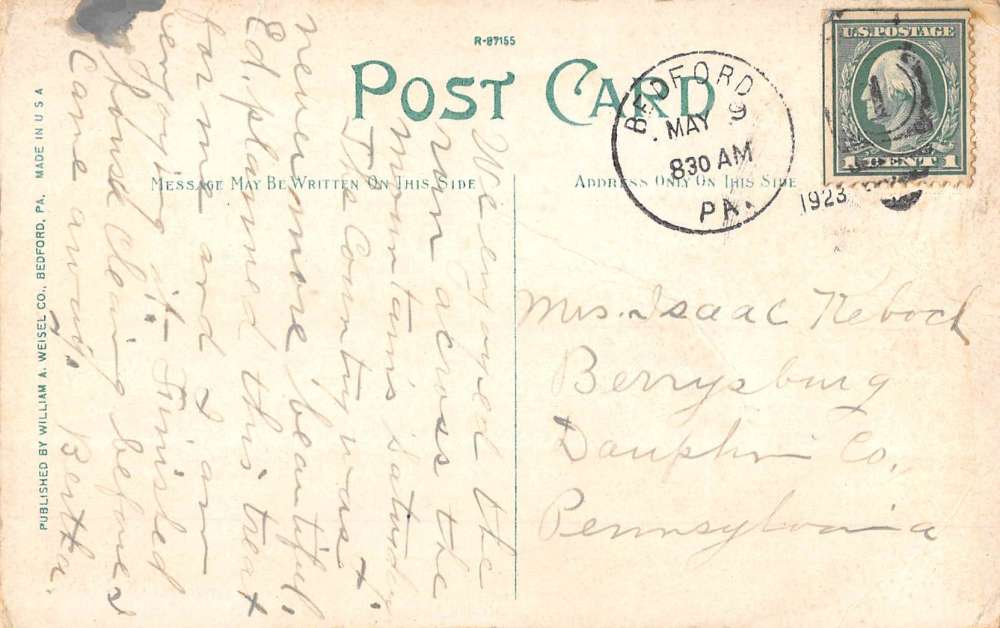 R-87155
POST CARD
MESSAGE MAY BE WRITTEN ON THIS SIDE
ADDRESS ONLY ON THIS SIDE
U.S. POSTAGE
1 CENT 1
BEDFORD
MAY 9
830 AM
PA.
1923
Mrs. Isaac Neboch
Berrysburg
Dauphin Co.,
Pennsylvania
We enjoyed the
run across the
mountains saturday
The Country was
never more beautiful.
Ed. planned this treat
for me and I am
enjoying it. Finished
house cleaning before I
Came away. Bertha.
PUBLISHED BY WILLIAM A. WEISEL CO., BEDFORD, PA. MADE IN U S A